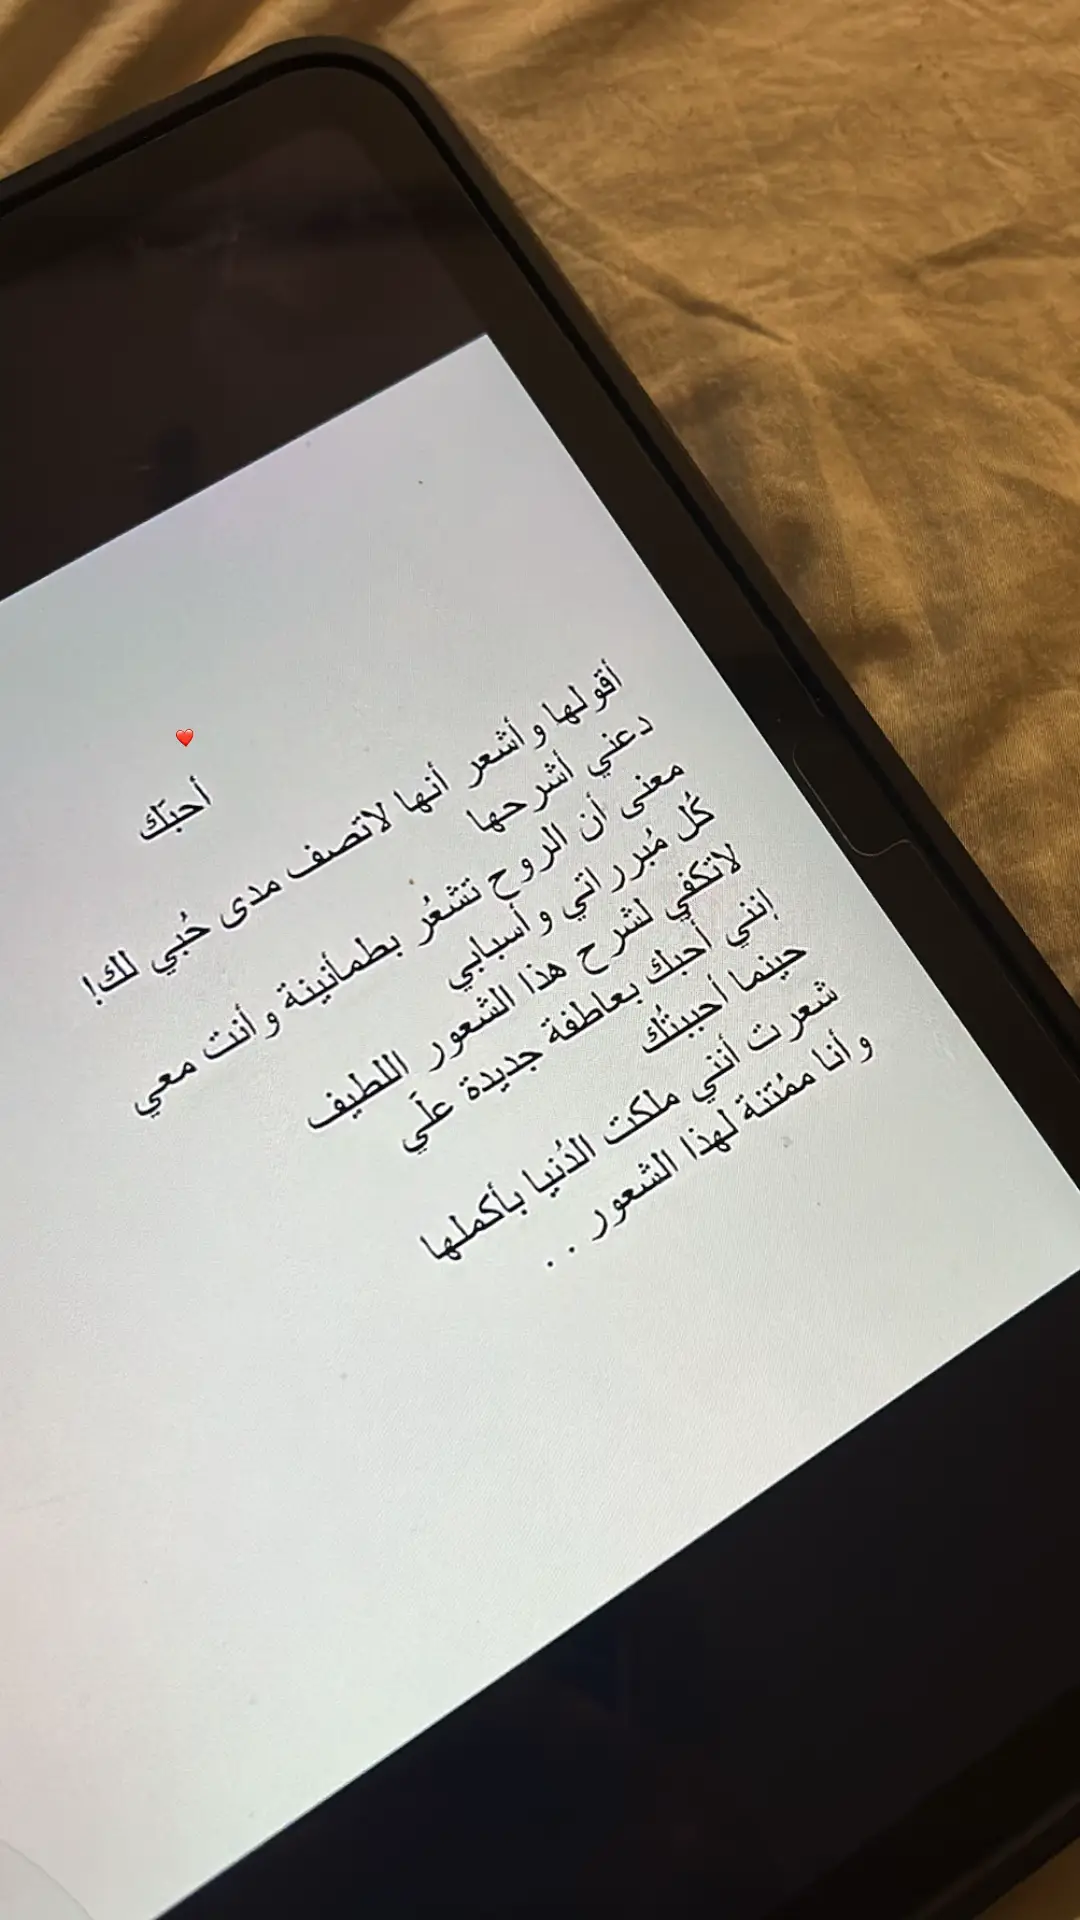 ❤️
أحبّك
أقولها وأشعر أنها لاتصف مدى حُبي لك!
دعني أشرحها
معنى أن الروح تشعُر بطمأنينة وأنت معي
كُل مُبرراتي وأسبابي
لاتكفي لشرح هذا الشعور اللطيف
إنني أحبك بعاطفة جديدة علَي
حينما أحببتُك
شعرت أنني ملكت الدُنيا بأكملها
وأنا ممُتنة لهذا الشعور . .